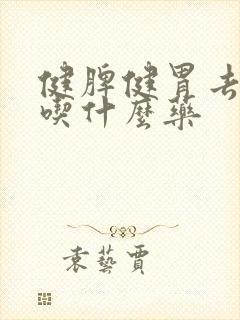 健脾健胃去
喫什麼藥
袁藝賈